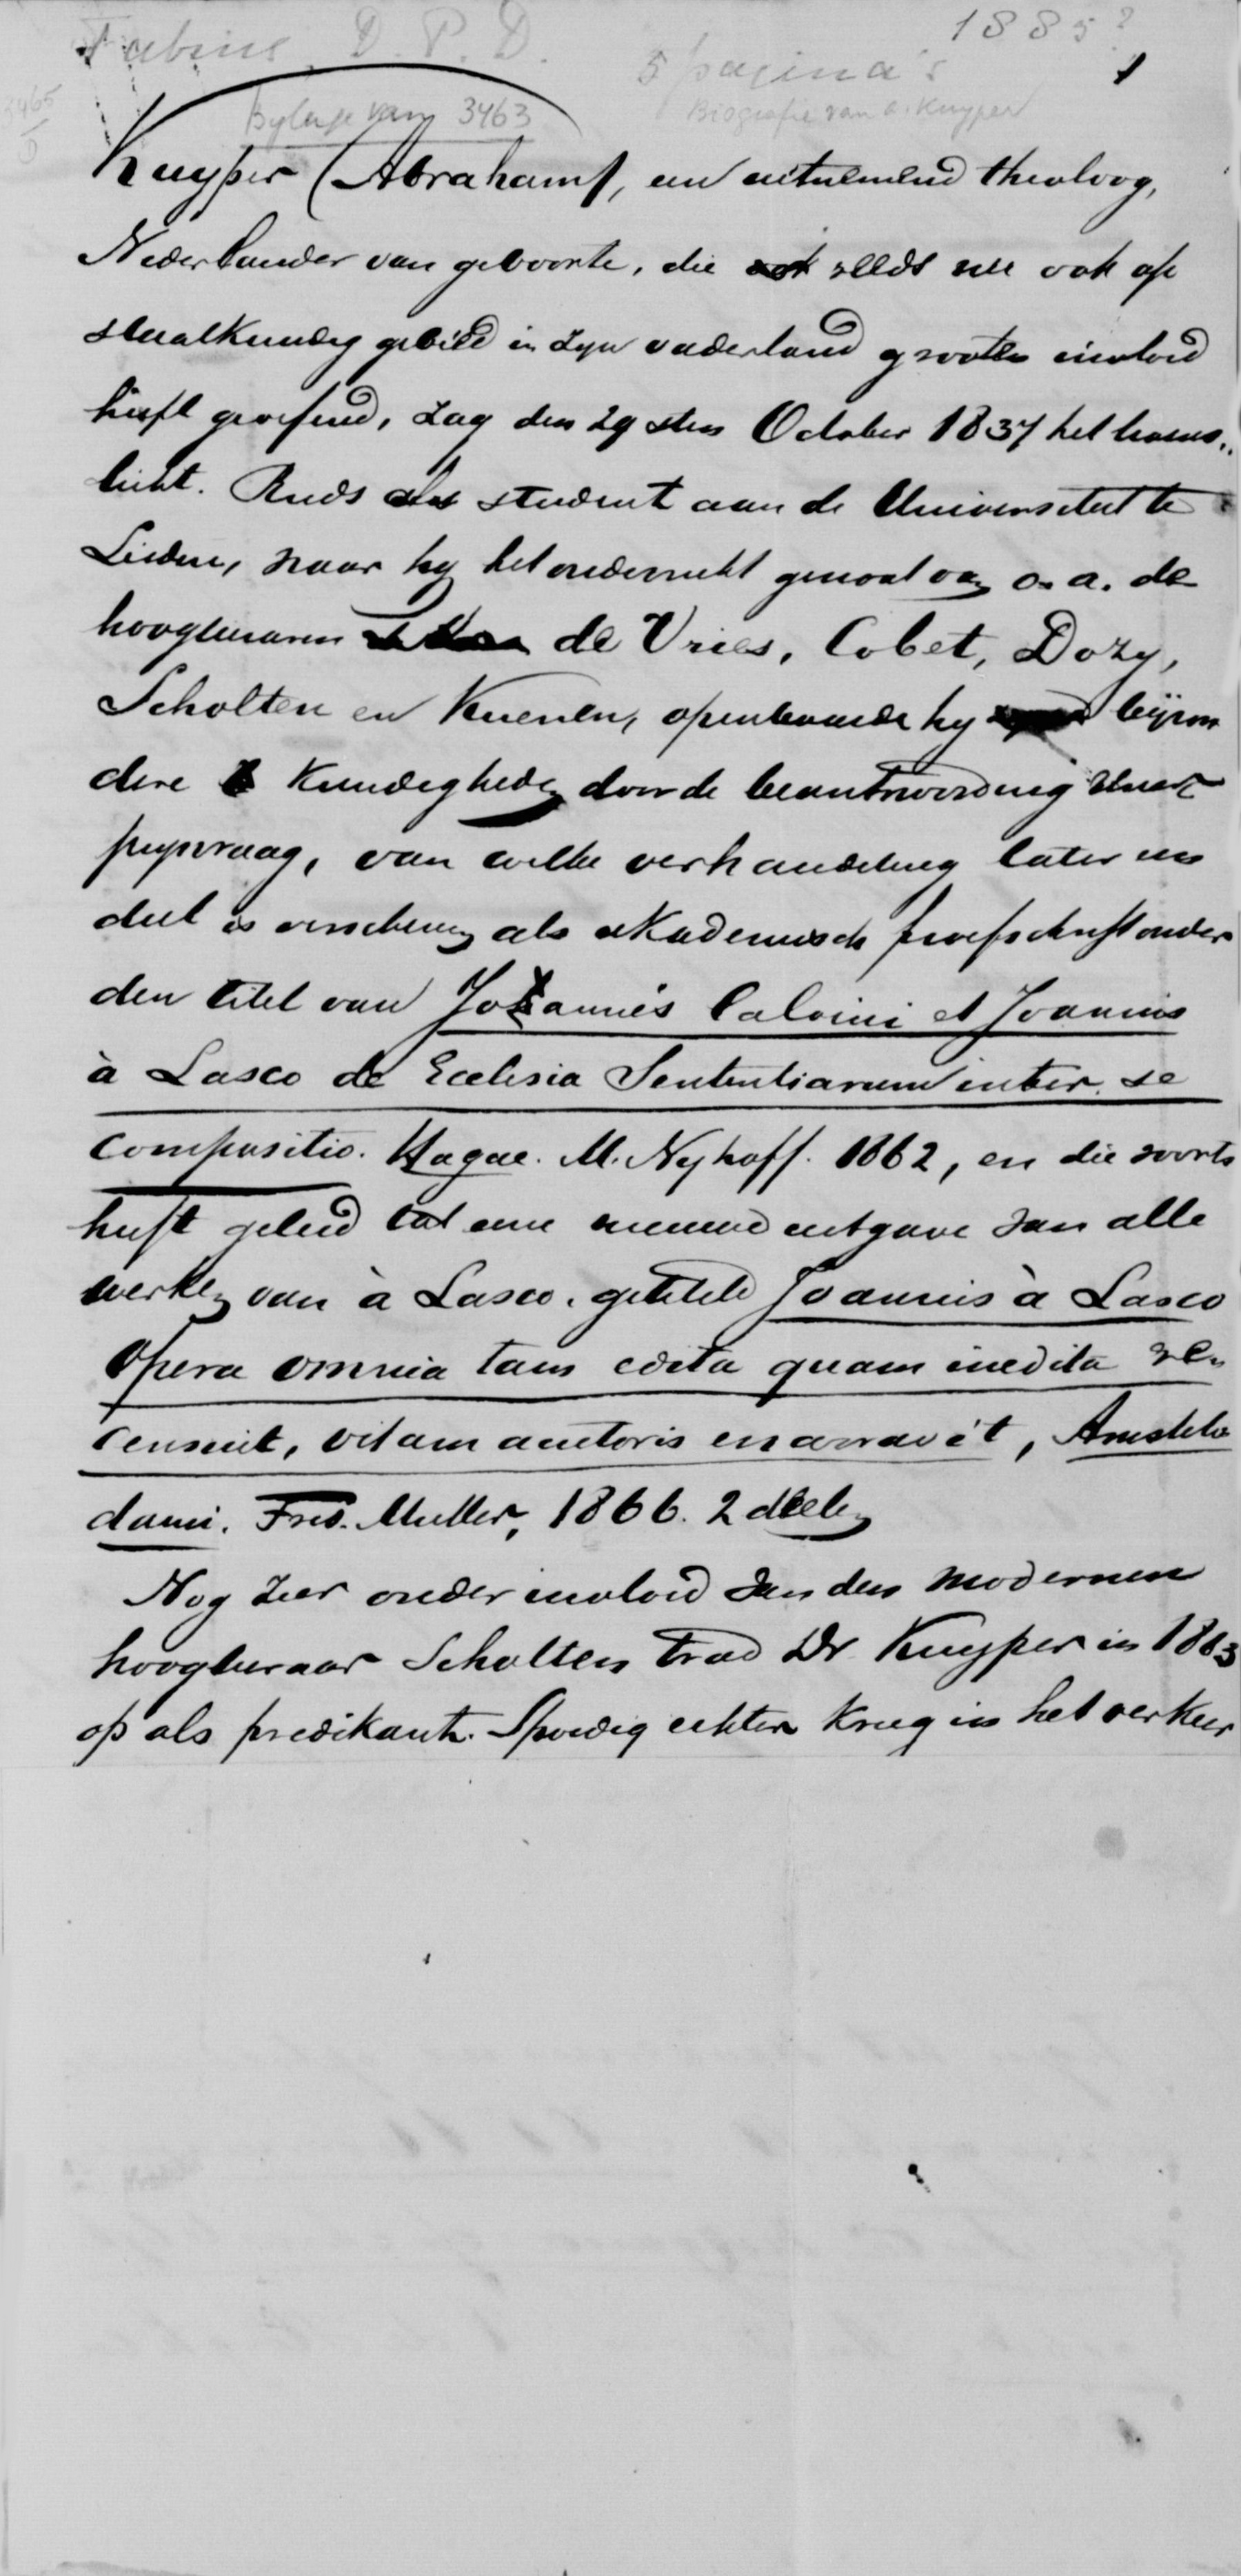 Fabius, D. P. D.
1885?
5 pagina's
1
3465
Bylage van 3463
Biografie van A. Kuyper
Kuyper (Abraham), een uitnemend theoloog,
Nederlander van geboorte, die reeds nu ook op
staatkundig gebied in zyn vaderland grooten invloed
heeft geoefend, zag den 29 sten October 1837 het levens-
licht. Reeds als student aan de Universiteit te
Leiden, waar hy het onderricht genoot van o. a. de
hoogleraren de Vries, Cobet, Dozy,
Scholten en Kuenen, openbaarde hy bijzon
dere kundigheden door de beantwoording eener
prysvraag, van welke verhandeling later een
deel is verschenen als akademisch proefschrift onder
den titel van Joannis Calvini et Joannis
à Lasco de Ecclesia Sententiarum inter se
compositio. Hagae. M. Nyhoff. 1862, en die voorts
heeft geleid tot eene nieuwe uitgave van alle
werken van à Lasco, getiteld Joannis à Lasco
Opera omnia tam edita quam inedita re-
censuit, vitam auctoris enarravit, Amstelo
dami. Fred. Muller, 1866. 2 deelen
Nog zeer onder invloed van den modernen
hoogleraar Scholten trad Dr Kuyper in 1863
op als predikant. Spoedig echter kreeg in het verkeer